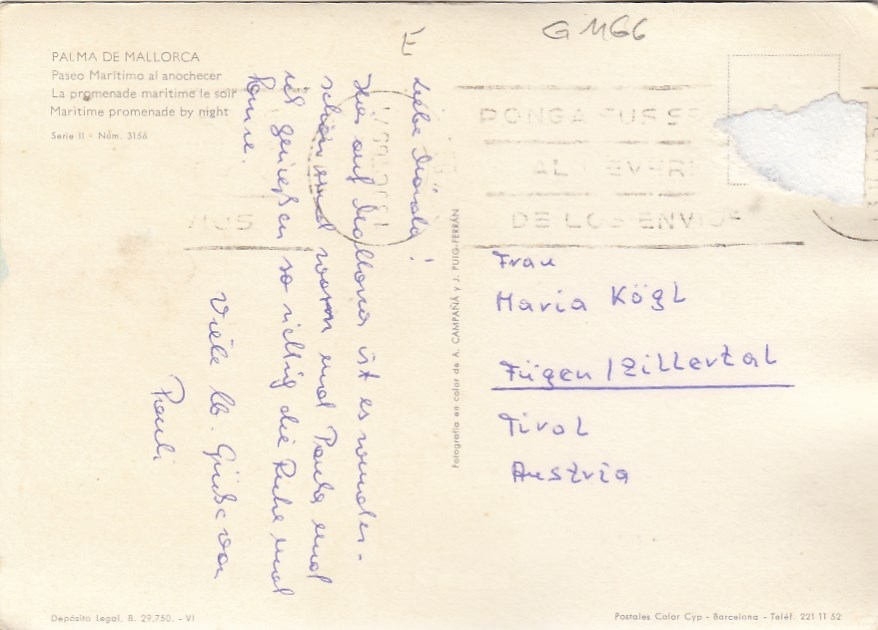 G 1166
E
PALMA DE MALLORCA
Paseo Marítimo al anochecer
La promenade maritime le soir
Maritime promenade by night
Serie II - Núm. 3156
PONGA SUS SE
AL REVERS
DE LOS ENVIOS
VIOS
Liebe
Hier auf Mallorca ist es wunder-
schön und warm und Paula und
ich genießen so richtig die Ruhe und
Sonne.
Viele lb. Grüße von
Pauli
Fotografía en color de A. CAMPAÑÁ y J. PUIG-FERRÁN
Frau
Maria Kögl
Fügen / Zillertal
Tirol
Austria
Depósito Legal, B. 29,750. - VI
Postales Color Cyp - Barcelona - Teléf. 221 11 52